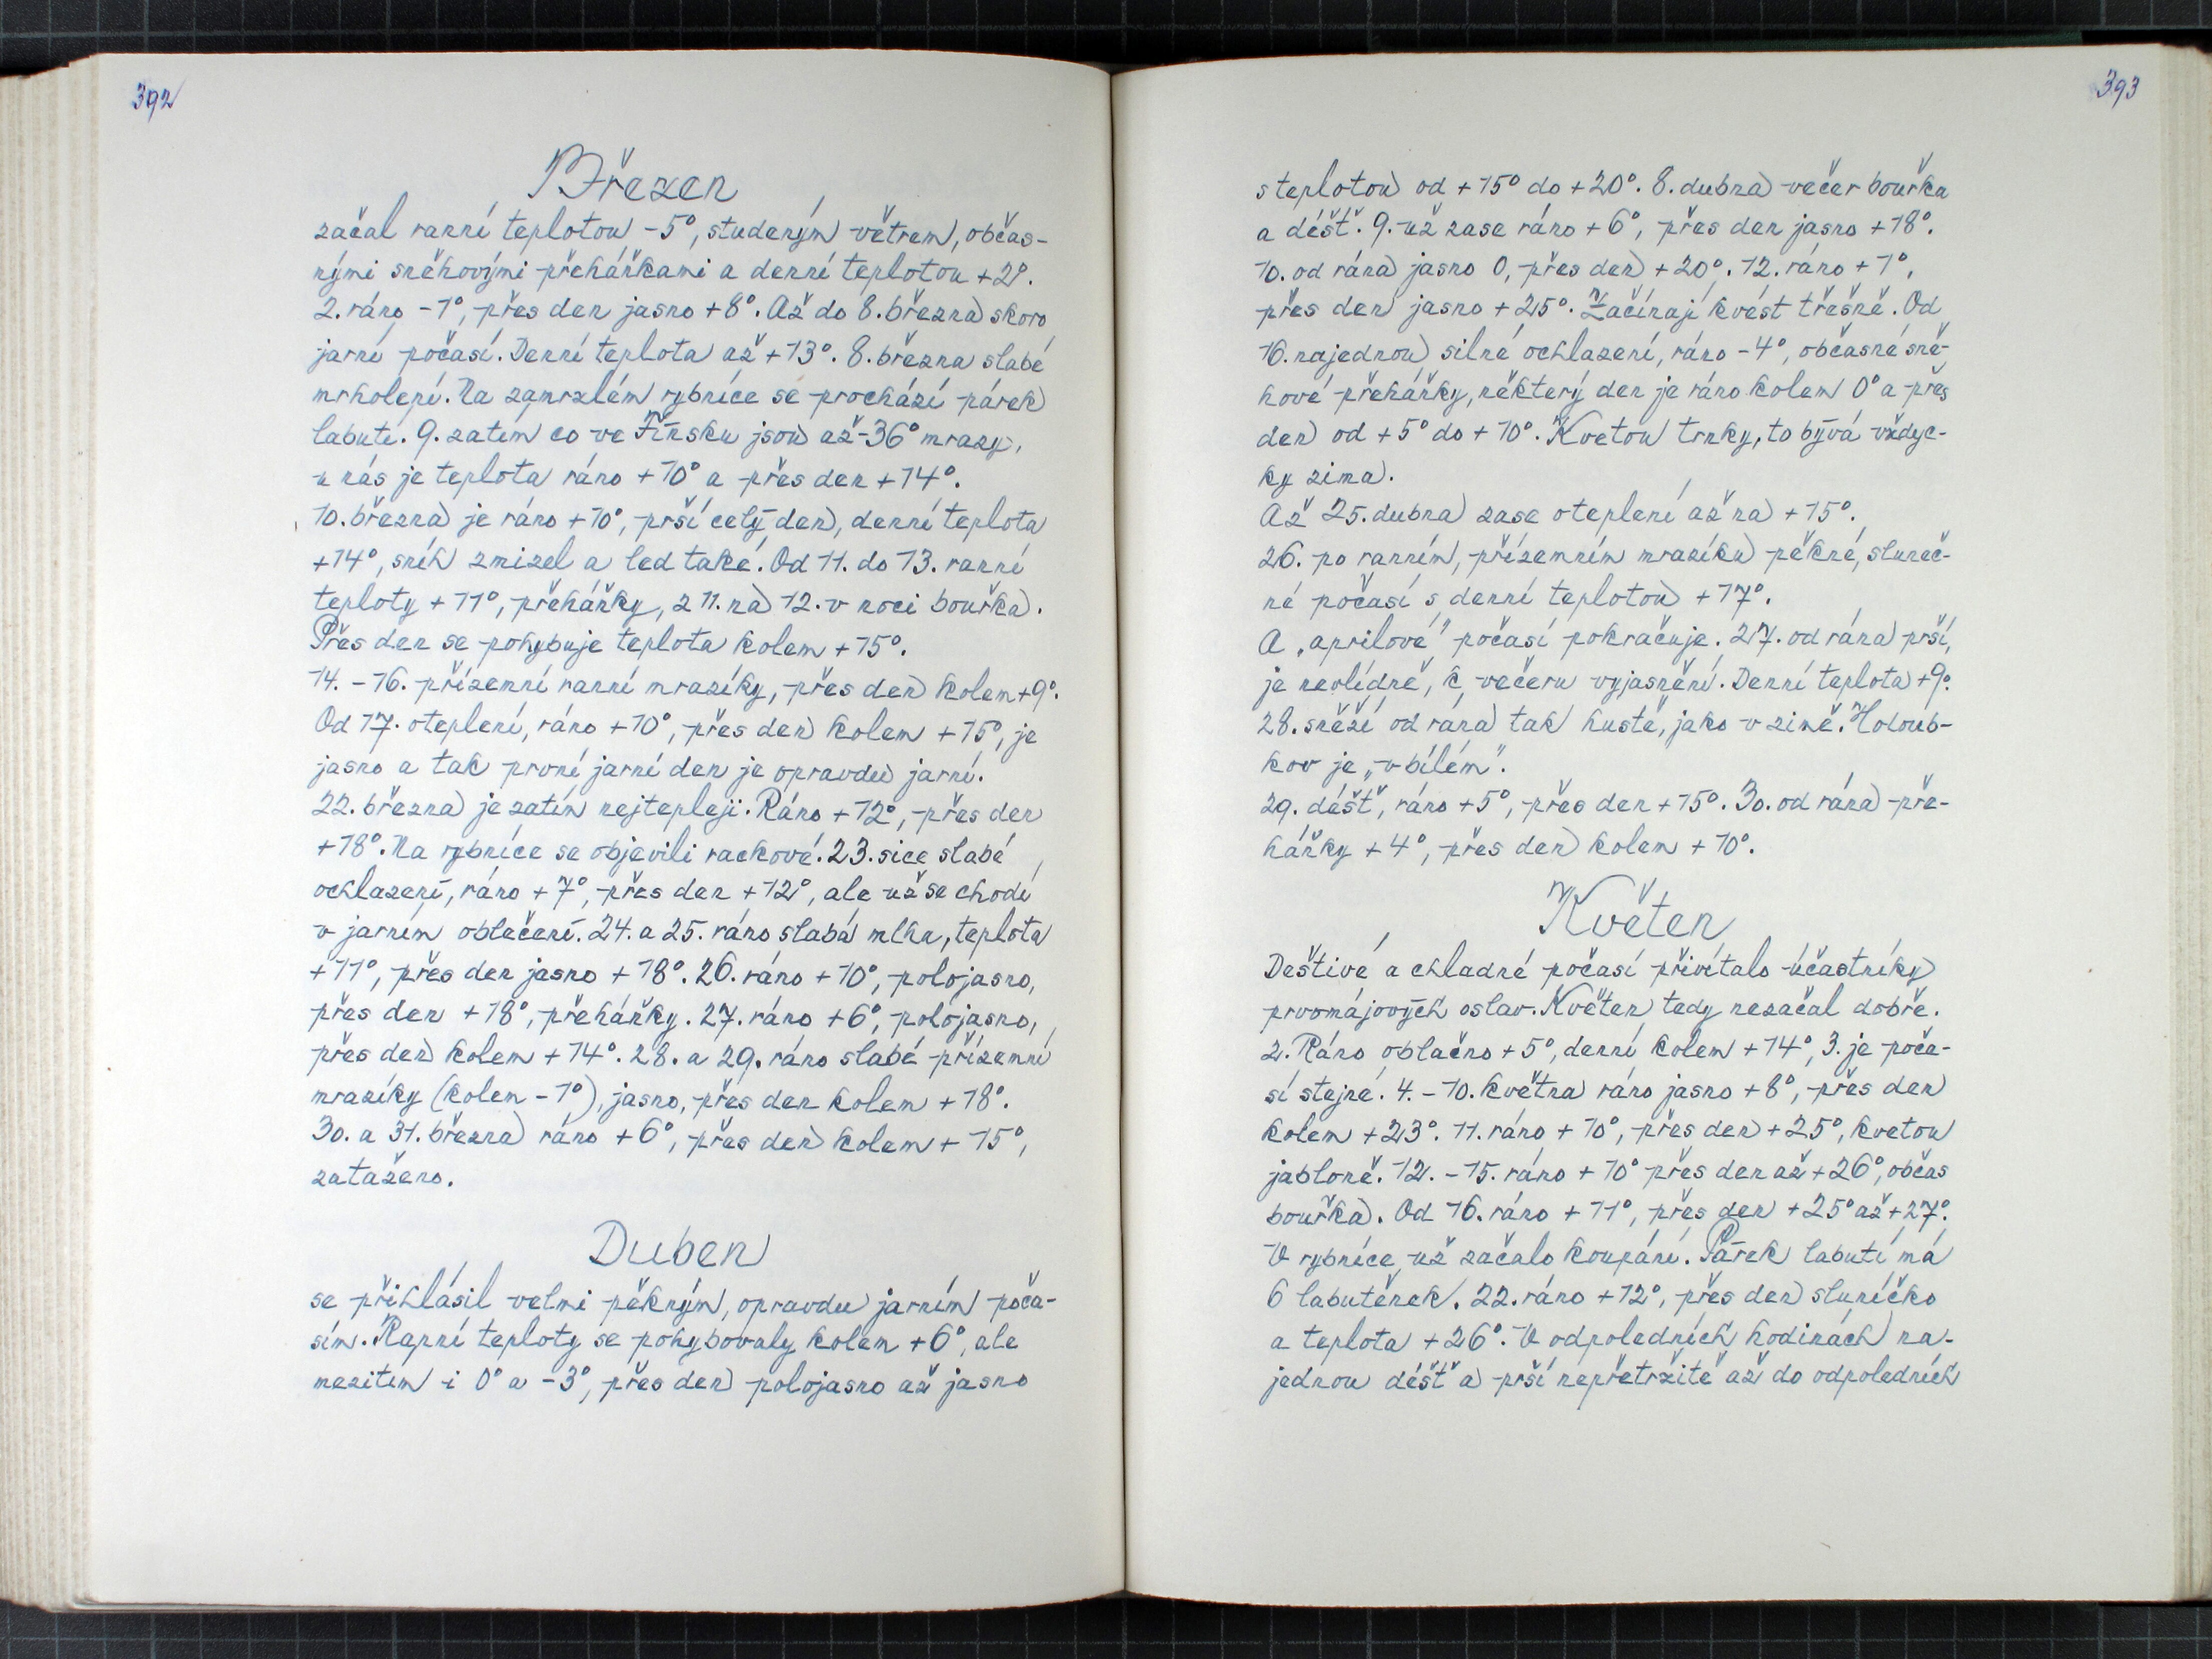 392
Březen
začal ranní teplotou -5°, studeným větrem, občas-
nými sněhovými přeháňkami a denní teplotou +2°.
2. ráno -1°, přes den jasno +8°. Až do 8. března skoro
jarní počasí. Denní teplota až +13°. 8. března slabé
mrholení. Na zamrzlém rybníce se prochází párek
labutí. 9. zatím co ve Finsku jsou až -36° mrazy,
u nás je teplota ráno +10° a přes den +14°.
10. března je ráno +10°, prší celý den, denní teplota
+14°, sníh zmizel a led také. Od 11. do 13. ranní
teploty +11°, přeháňky, z 11. na 12. v noci bouřka.
Přes den se pohybuje teplota kolem +15°.
14. - 16. přízemní ranní mrazíky, přes den kolem +9°.
Od 17. oteplení, ráno +10°, přes den kolem +15°, je
jasno a tak první jarní den je opravdu jarní.
22. března je zatím nejtepleji. Ráno +12°, přes den
+18°. Na rybníce se objevili rackové. 23. sice slabé
ochlazení, ráno +7°, přes den +12°, ale už se chodí
v jarním oblečení. 24. a 25. ráno slabá mlha, teplota
+11°, přes den jasno +18°. 26. ráno +10°, polojasno,
přes den +18°, přeháňky. 27. ráno +6°, polojasno,
přes den kolem +14°. 28. a 29. ráno slabé přízemní
mrazíky (kolem -1°), jasno, přes den kolem +18°.
30. a 31. března ráno +6°, přes den kolem +15°,
zataženo.
Duben
se přihlásil velmi pěkným, opravdu jarním poča-
sím. Ranní teploty se pohybovaly kolem +6°, ale
mezitím i 0° a -3°, přes den polojasno až jasno
393
s teplotou od +15° do +20°. 8. dubna večer bouřka
a déšť. 9. už zase ráno +6°, přes den jasno +18°.
10. od rána jasno 0, přes den +20°. 12. ráno +1°,
přes den jasno +25°. Začínají kvést třešně. Od
16. najednou silné ochlazení, ráno -4°, občasné sně-
hové přeháňky, některý den je ráno kolem 0° a přes
den od +5° do +10°. Kvetou trnky, to bývá vždyc-
ky zima.
Až 25. dubna zase oteplení až na +15°.
26. po ranním, přízemním mrazíku pěkné, sluneč-
né počasí s denní teplotou +17°.
A „aprílové" počasí pokračuje. 27. od rána prší,
je nevlídně, k večeru vyjasnění. Denní teplota +9°.
28. sněží od rána tak hustě, jako v zimě. Holoub-
kov je „v bílém".
29. déšť, ráno +5°, přes den +15°. 30. od rána pře-
háňky +4°, přes den kolem +10°.
Květen
Deštivé a chladné počasí přivítalo účastníky
prvomájových oslav. Květen tedy nezačal dobře.
2. Ráno oblačno +5°, denní kolem +14°, 3. je poča-
sí stejné. 4. - 10. května ráno jasno +8°, přes den
kolem +23°. 11. ráno +10°, přes den +25°, kvetou
jabloně. 12. - 15. ráno +10° přes den až +26°, občas
bouřka. Od 16. ráno +11°, přes den +25° až +27°.
V rybníce už začalo koupání. Párek labutí má
6 labuťěnek. 22. ráno +12°, přes den sluníčko
a teplota +26°. V odpoledních hodinách na-
jednou déšť a prší nepřetržitě až do odpoledních